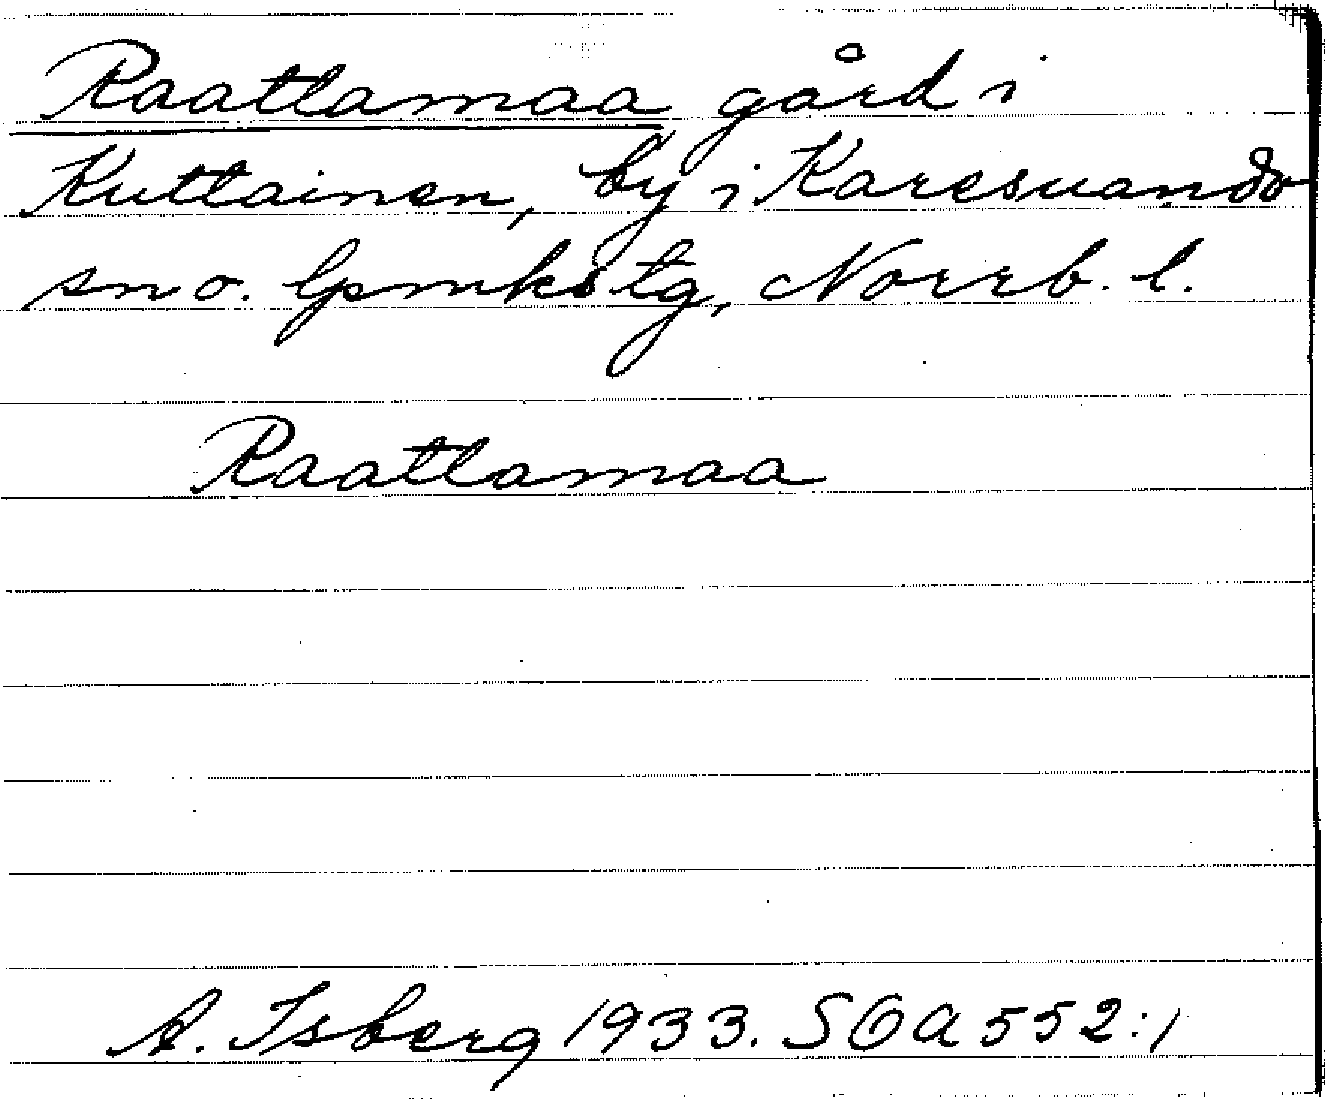 Raattamaa gård i
Kuttainen, by i Karesuando
sn o. lpmkstg, Norrb. l.
Raattamaa
A. Isberg 1933. SOA 552:1